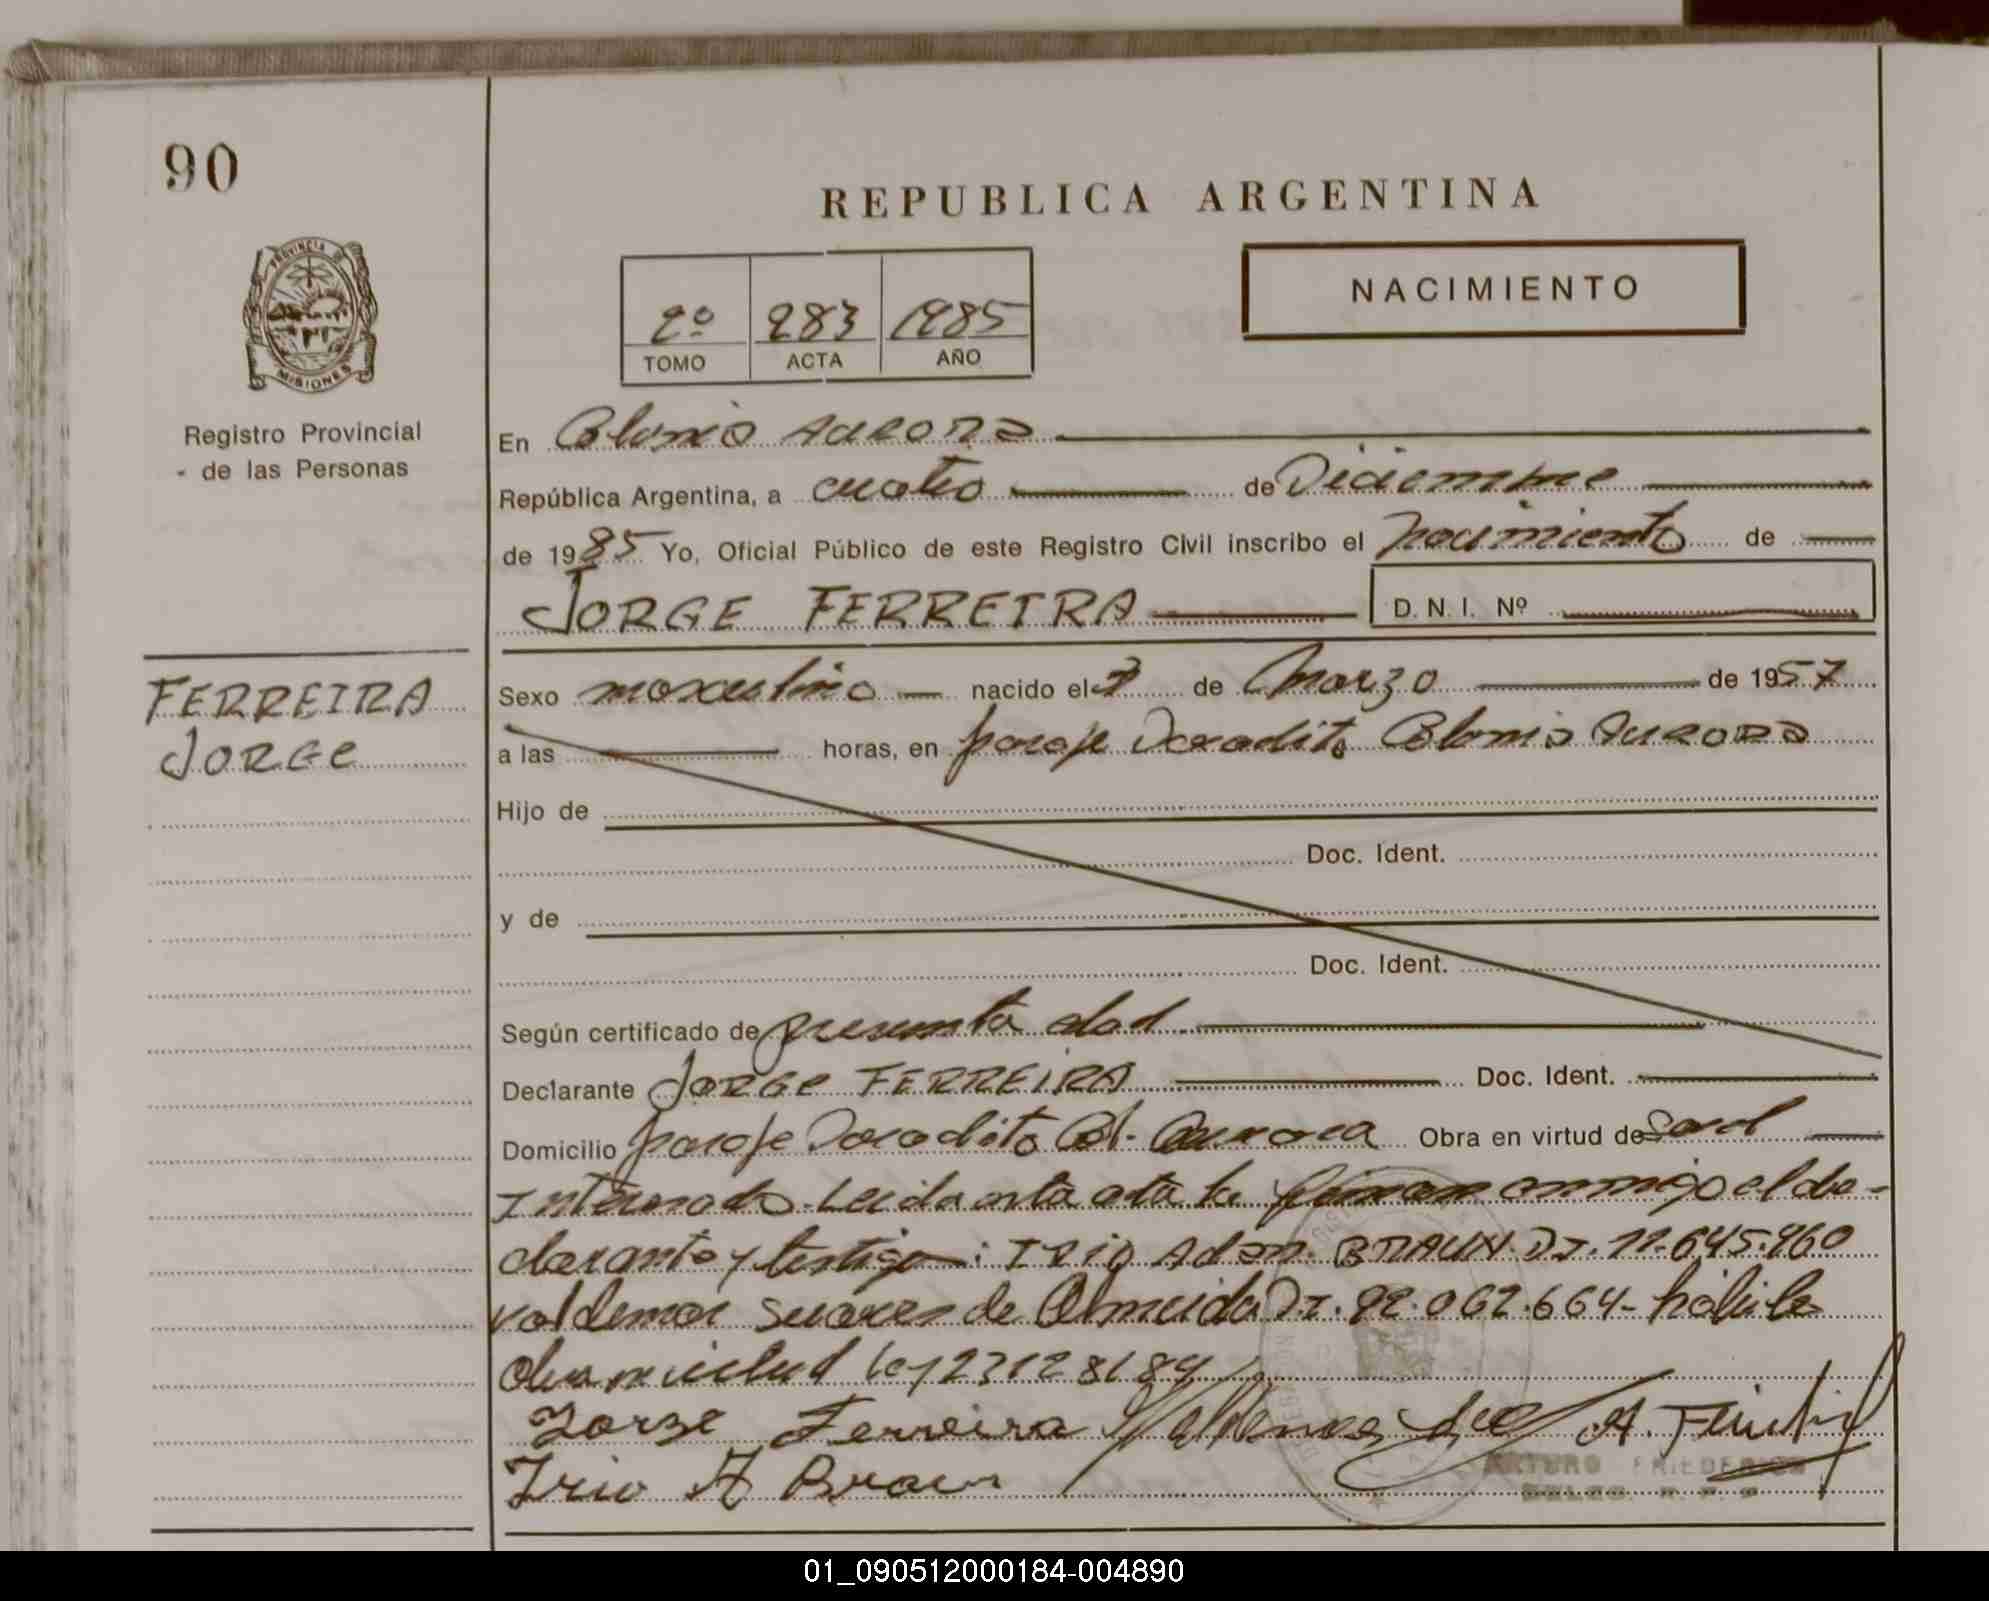 90
REPUBLICA ARGENTINA
PROVINCIA DE
MISIONES
NACIMIENTO
2º 283 1985
TOMO ACTA AÑO
Registro Provincial
de las Personas
En Colonia Aurora
República Argentina, a cuatro de Diciembre
de 1985 Yo, Oficial Público de este Registro Civil inscribo el Nacimiento de
JORGE FERREIRA D. N. I. Nº
FERREIRA
JORGE
Sexo masculino nacido el 7 de Marzo de 1957
a las horas, en paraje Doradito Colonia Aurora
Hijo de
Doc. Ident.
y de
Doc. Ident.
Según certificado de presunta edad
Declarante JORGE FERREIRA Doc. Ident.
Domicilio paraje Doradito Col. Aurora Obra en virtud de Ser el
Interesado. Leida esta acta la firman conmigo el de-
clarante y testigos: IRIO Adan BRAUN DI. 11.645.960
Valdemar Suares de Almeida DI. 92.062.664- hábiles
Obra en virtud ley 23128/84
Jorge Ferreira
Irio A Braun
ARTURO FRIEDERICH
01_090512000184-004890